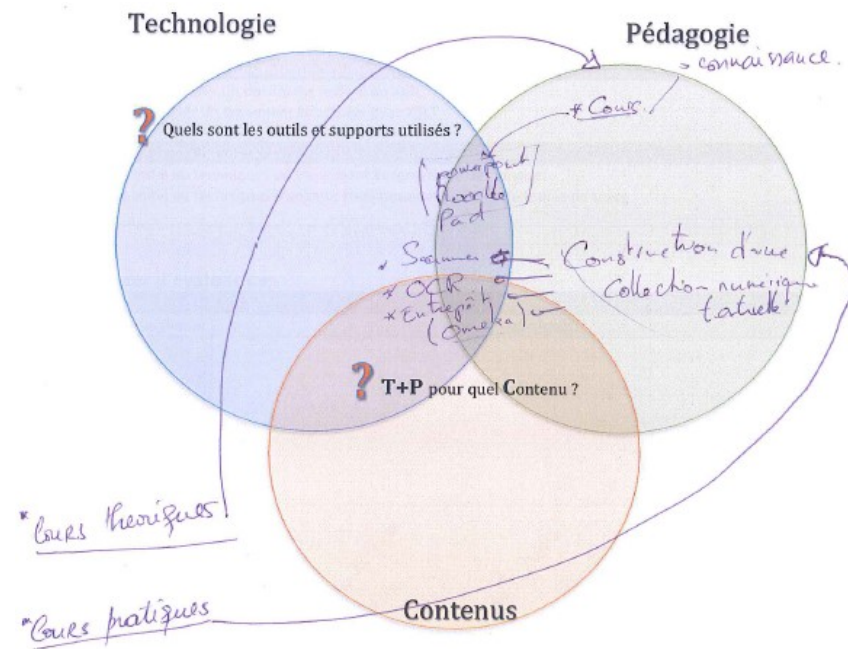 Technologie
Pédagogie
→ connaissance.
* Cours.
? Quels sont les outils et supports utilisés ?
(powerpoint
Moodle
Pad)
* Scanner
* OCR
* Entrepôt
(Omeka)
Construction d'une
Collection numérique
textuelle
? T+P pour quel Contenu ?
* Cours theoriques
* Cours pratiques
Contenus